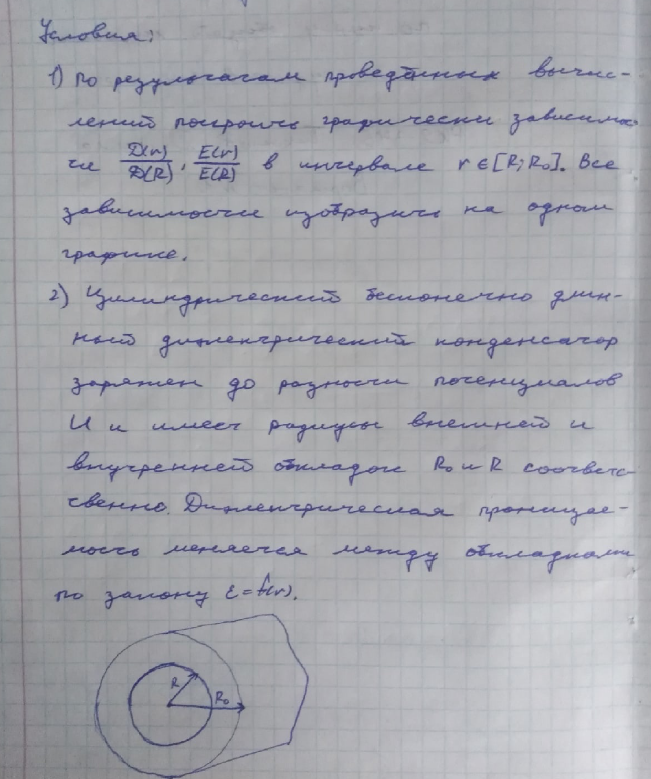 Условия:
1) По результатам проведённых вычис-
лений построить графически зависимос-
ти D(r)/D(R), E(r)/E(R) в интервале r∈[R;R₀]. Все
зависимости изобразить на одном
графике.
2) Цилиндрический бесконечно длин-
ный диэлектрический конденсатор
заряжен до разности потенциалов
U и имеет радиусы внешней и
внутренней обкладок R₀ и R соответс-
ственно. Диэлектрическая проницае-
мость меняется между обкладками
по закону ε=f(r).
R
R₀